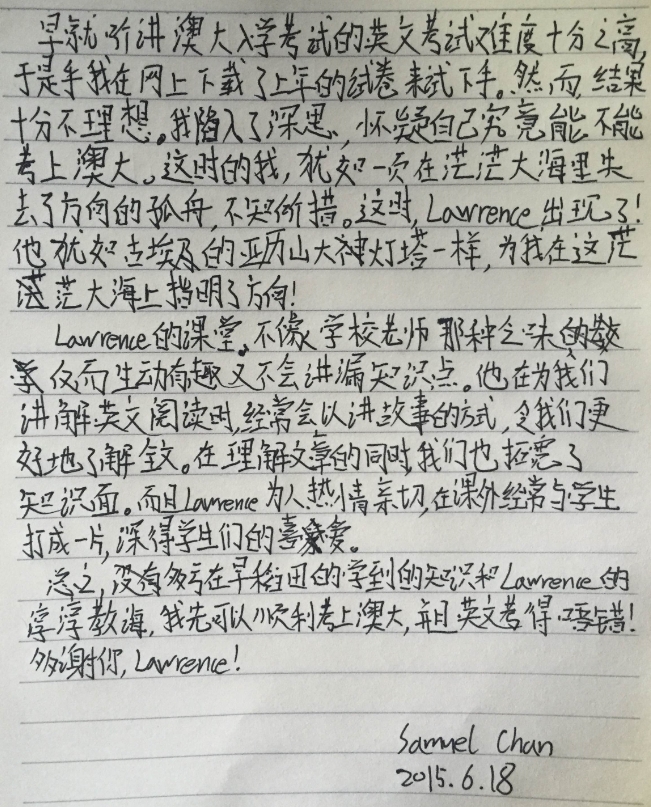 早就听讲澳大入学考试的英文考试难度十分之高,
于是乎我在网上下载了上年的试卷来试下手。然而,结果
十分不理想。我陷入了深思,怀疑自己究竟能不能
考上澳大。这时的我,犹如一页在茫茫大海里失
去了方向的孤舟,不知所措。这时,Lawrence出现了!
他犹如古埃及的亚历山大神灯塔一样,为我在这茫
茫大海上指明了方向!
Lawrence的课堂,不像学校老师那种乏味的教
学,反而生动有趣又不会讲漏知识点。他在为我们
讲解英文阅读时,经常会以讲故事的方式,令我们更
好地了解全文。在理解文章的同时,我们也拓宽了
知识面。而且Lawrence为人热情亲切,在课外经常与学生
打成一片,深得学生们的喜爱。
总之,没有多亏在早稻田的学到的知识和Lawrence的
谆谆教诲,我先可以顺利考上澳大,并且英文考得唔错!
多谢你,Lawrence!
Samuel Chan
2015.6.18